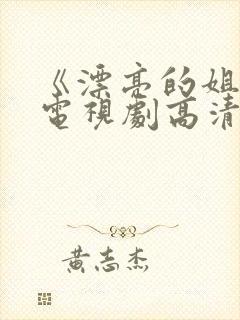 《漂亮的姐
電視劇高清
黄志杰